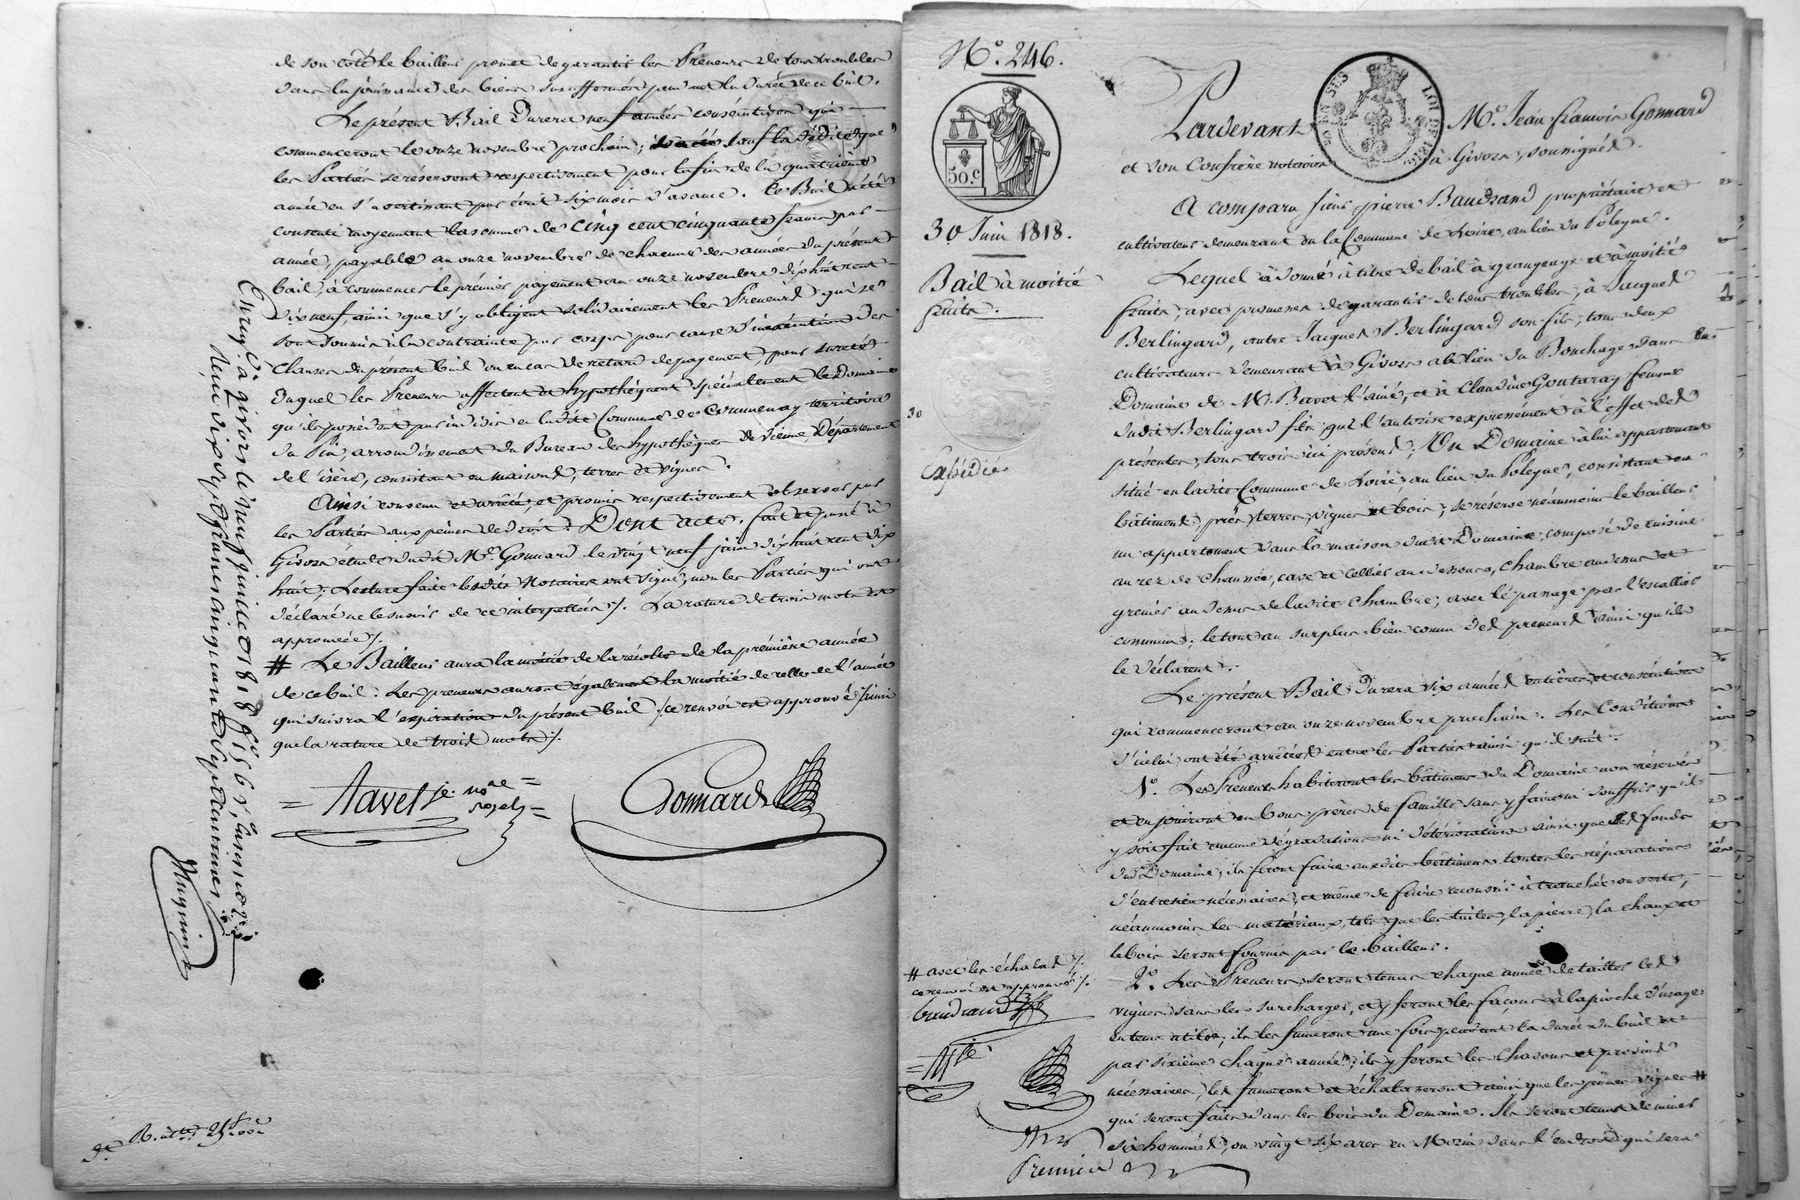 de son côté le bailleur promet de garantir les Preneurs de tous troubles
dans la jouissance des biens susaffermés pendant la durée de ce bail.
Le présent Bail Durera neuf années consécutives qui
commenceront le onze novembre prochain; sauf la dédite que
les Parties se réservent respectivement pour la fin de la quatrième
année en s'avertissant par écrit six mois d'avance. Ce Bail a été
consenti moyennant la somme de cinq cent cinquante francs par
année, payable au onze novembre de chacune des années du présent
bail, à commencer le premier payement au onze novembre dix huit cent
dix neuf, ainsi que s'y obligent solidairement les Preneurs qui se
sont soumis à la contrainte par corps pour cause d'inexécution des
clauses du présent bail ou en cas de retard de payement, pour sureté
duquel les Preneurs affectent et hypothèquent spécialement le Domaine
qu'ils possèdent par indivis en ladite Commune de Communay territoire
du Pin, arrondissement du Bureau des hypothèques de Vienne Département
de l'isère, consistant en maisons, terres et vignes.
Ainsi convenu et arrêté, et promis respectivement observer par
les Parties aux peines de droit. Dont acte. fait et passé à
Givors étude dudit Me. Gonnard le vingt neuf juin dix huit cent dix
huit; Lecture faite lesdits Notaires ont signé, non les Parties qui ont
déclaré ne le savoir de ce interpellées /. La rature de trois mots est
approuvée /.
# Le Bailleur aura la moitié de la récolte de la première année
de ce bail. Les preneurs auront également la moitié de celle de l'année
qui suivra l'expiration du présent bail /. ce renvoi est approuvé ainsi
que la rature de trois mots /.
= Navel je. nore =
royal =
Gonnard
Enreg. à givors le neuf juillet 1818 fo 156
Reçu dix sept francs cinquante sept centimes
No. 246.
50.c
30 Juin 1818.
Bail à moitié
fruits.
30
Expédié
Pardevant Me. Jean françois Gonnard
et son Confrère notaires à Givors, soussignés.
A comparu sieur pierre Baudrand propriétaire et
cultivateur demeurant en la Commune de Loire, au lieu du Poleyne.
Lequel a donné à titre de bail à grangeage et à moitié
fruits, avec promesse de garantir de tous troubles, à Jacques
Berlingard, autre Jacques Berlingard son fils, tous deux
cultivateurs demeurant à Givors au lieu du Bouchage dans le
Domaine de M. Bavet l'ainé, et à Claudine Gontaray femme
dudit Berlingard fils qui l'autorise expressément à l'effet des
présentes, tous trois ici présens, Un Domaine à lui appartenant
situé en ladite Commune de Loire au lieu du Poleyne, consistant en
bâtiment, prés, terres, vignes et bois; se réserve néanmoins le bailleur
un appartement dans la maison dudit Domaine, composé de cuisine
au rez de chaussée, cave et cellier au dessous, chambre au dessus et
grenier au dessus de ladite chambre; avec le passage par l'escallier
commun; le tout au surplus bien connu des preneurs ainsi qu'ils
le déclarent.
Le présent Bail Durera six années entières et consécutives
qui commenceront au onze novembre prochain. Les Conditions
d'icelui ont été arrêtées entre les Parties ainsi qu'il suit.
1o. Les Preneurs habiteront les bâtimens du Domaine non réservés
et en jouiront en bons pères de famille sans y faire ni souffrir qu'il
y soit fait aucune dégradation ni détérioration ainsi que des fonds
dud. Domaine; ils feront faire auxdits bâtimens toutes les réparations
d'entretien nécessaires, et même de faire recouvrir à tranchée ouverte,
néanmoins les matériaux, tels que les tuiles, la pierre, la chaux et
le bois seront fournis par le bailleur.
2o. Les Preneurs seront tenus chaque année de tailler les
vignes sans les surcharger, et y feront les façons à la pioche d'usage
en tems utiles; ils les fumeront une fois pendant la durée du bail et
par sixième chaque année; ils y feront les chavons et provins
nécessaires, les fumeront et échalasseront ainsi que les jeunes vignes #
qui seront faits dans les bois du Domaine. Ils seront tenus de miner
six hommées, ou vingt six ares en Morin dans l'endroit qui sera
# avec les échalas /.
ce renvoi est approuvé /.
baudrand
Premier